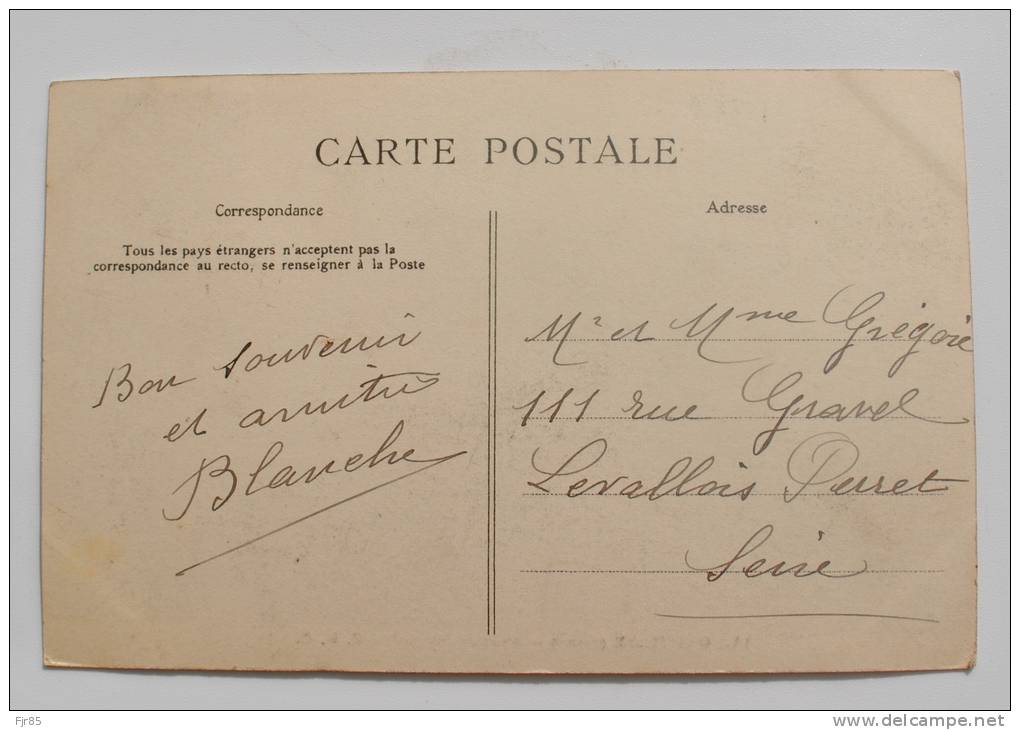 CARTE POSTALE
Correspondance
Tous les pays étrangers n'acceptent pas la
correspondance au recto, se renseigner à la Poste
Bon souvenir
et amitiés
Blanche
Adresse
Mr et Mme Grégoire
111 rue Gravel
Levallois Perret
Seine
Fjr85
www.delcampe.net